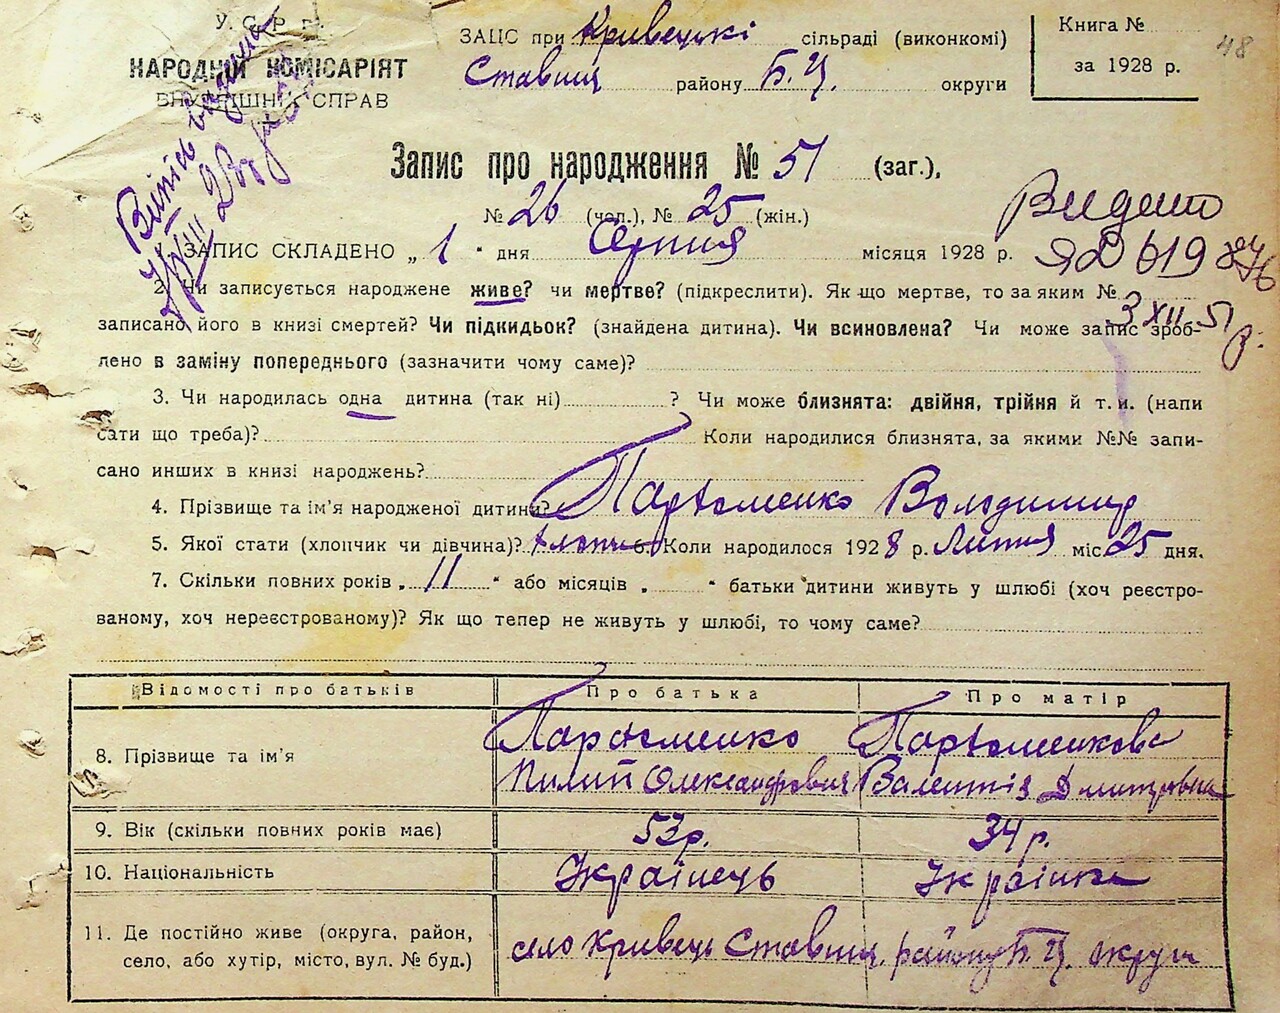 У.С.Р.Р.
НАРОДНІЙ КОМІСАРІЯТ
ВНУТРІШНІХ СПРАВ
ЗАЦС при Кривецькі сільраді (виконкомі)
Ставищ району Б.Ц. округи
Книга №
за 1928 р.
48
Запис про народження № 51 (заг.),
№ 26 (чол.), № 25 (жін.)
Видано
ЗАПИС СКЛАДЕНО „ 1 " дня Серпня місяця 1928 р.
ЯД 619
2. Чи записується народжене живе? чи мертве? (підкреслити). Як що мертве, то за яким №
3 XII 51 р.
записано його в книзі смертей? Чи підкидьок? (знайдена дитина). Чи всиновлена? Чи може запис зроб-
лено в заміну попереднього (зазначити чому саме)?
3. Чи народилась одна дитина (так ні) ? Чи може близнята: двійня, трійня й т. и. (напи
сати що треба)? Коли народилися близнята, за якими №№ запи-
сано инших в книзі народжень?
4. Прізвище та ім'я народженої дитини? Пархоменко Володимир
5. Якої стати (хлопчик чи дівчина)? хлопч 6. Коли народилося 1928 р. Липня міс. 25 дня.
7. Скільки повних років „ 11 " або місяців „ " батьки дитини живуть у шлюбі (хоч реєстро-
ваному, хоч нереєстрованому)? Як що тепер не живуть у шлюбі, то чому саме?
Відомості про батьків Про батька Про матір
8. Прізвище та ім'я Пархоменко Пилип Олександрович Пархоменкова Валентія Дмитрівна
9. Вік (скільки повних років має) 53 р. 34 р.
10. Національність Українець Українка
11. Де постійно живе (округа, район, село Кривець Ставищ. району Б.Ц. округи
село, або хутір, місто, вул. № буд.)